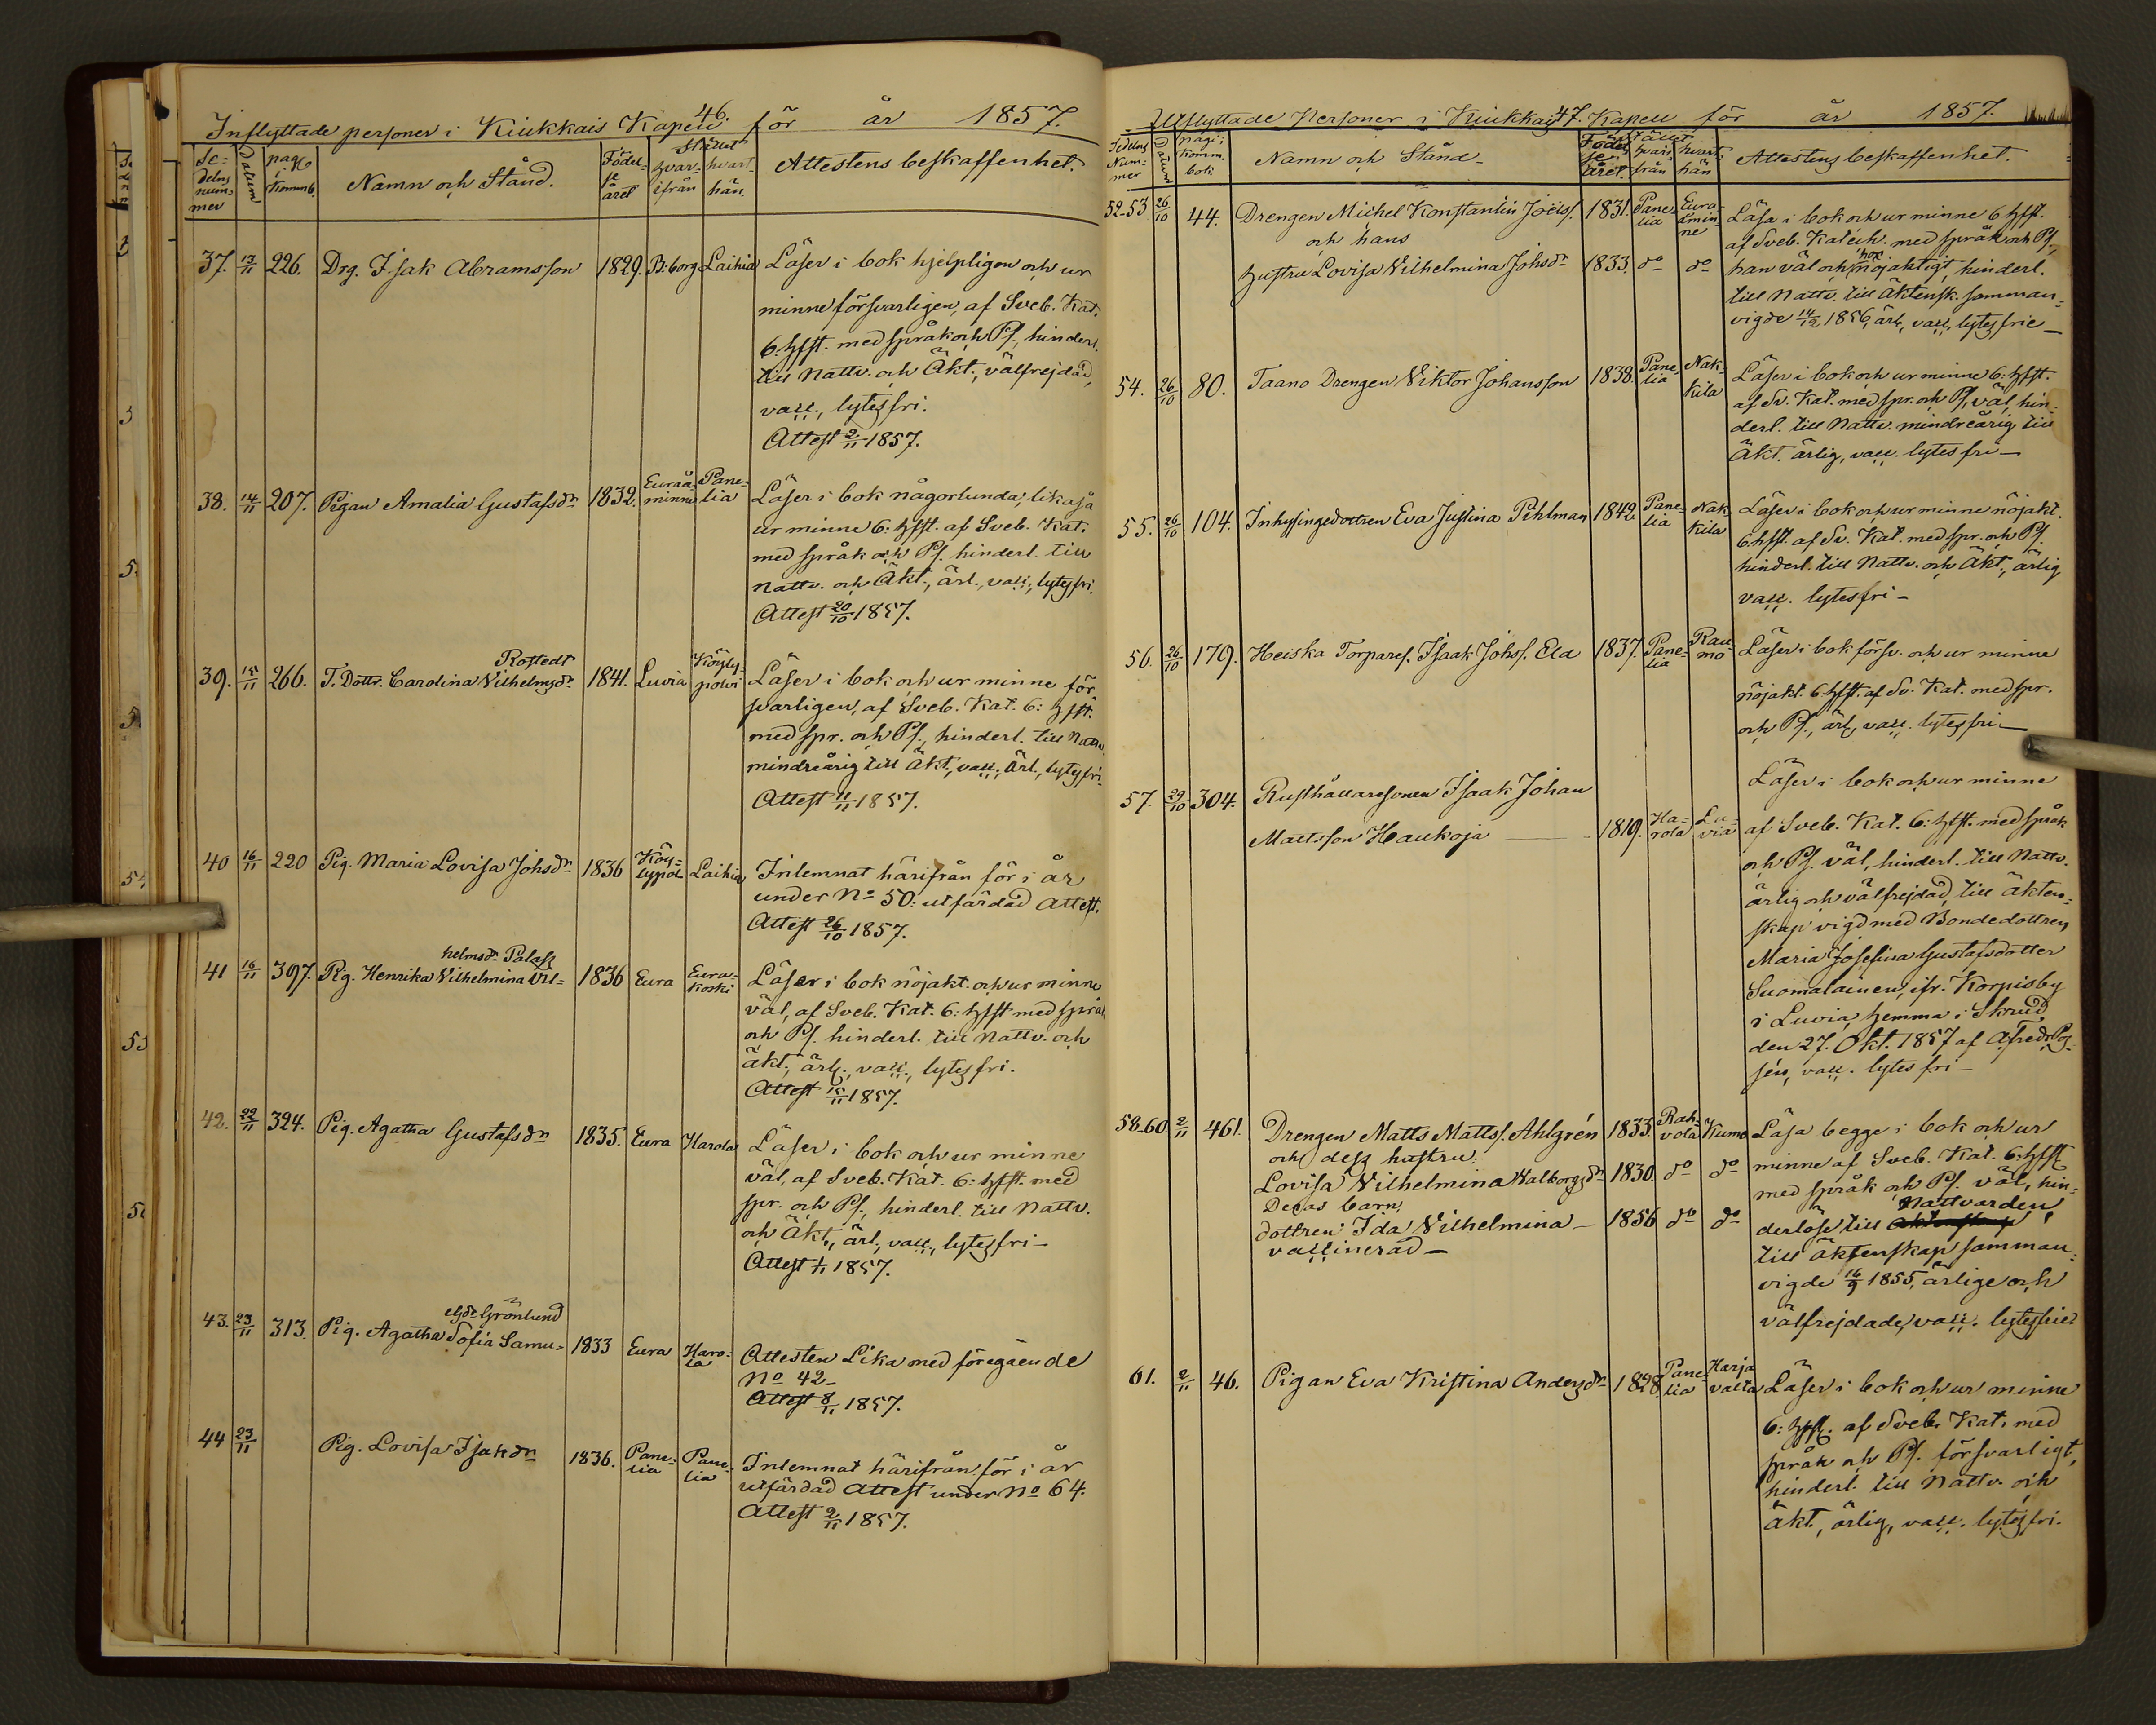 46.
Inflyttade personer i Kiukkais Kapell för år 1857.
Se-
delns
num-
mer
Datum
pag.
i
Komm b.
Namn och Stånd.
Födel-
se
året
Stället
hvar-
ifrån
hvart
hän.
Attestens beskaffenhet.
37. 13/11 226. Drg. Isak Abramsson 1829. B:borg Laihia Läser i bok hjelpligen och ur
minne försvarligen, af Sveb. Kat.
6. hfst. med språk och Ps., hinderl.
till Nattv. och Äkt., välfrejdad,
vacc., lytesfri.
Attest 2/11 1857.
38. 14/11 207. Pigan Amalia Gustafsdr 1832. Euraå-
minne Pane-
lia Läser i bok någorlunda, likaså
ur minne 6. hfst. af Sveb. Kat.
med språk och Ps. hinderl. till
Nattv. och Äkt., ärl., vacc., lytesfri.
Attest 20/10 1857.
Rostedt
39. 15/11 266. T. Dottr. Carolina Vilhelmsdr 1841. Luvia Köyly-
polvi Läser i bok och ur minne för-
svarligen, af Sveb. Kat. 6: hfst.
med spr. och Ps., hinderl. till Nattv.
mindreårig till Äkt., vacc., Ärl., lytesfri.
Attest 11/11 1857.
40 16/11 220 Pig. Maria Lovisa Johsdr 1836 Köy-
lypol- Laihia Inlemnat härifrån för i år
under No 50: utfärdad Attest.
Attest 26/10 1857.
helmsdr Palass
41 16/11 397. Pig. Henrika Vilhelmina Vil- 1836 Eura Eura-
koski Läser i bok nöjakt. och ur minne
väl, af Sveb. Kat. 6: hfst med språk
och Ps. hinderl. till Nattv. och
äkt., ärl., vacc., lytesfri.
Attest 15/11 1857.
42. 22/11 324. Pig. Agatha Gustafsdr 1835. Eura Harola Läser i bok och ur minne
väl, af Sveb. Kat. 6: hfst. med
spr. och Ps., hinderl. till Nattv.
och Äkt., ärl., vacc., lytesfri -
Attest 1/11 1857.
elsdr Grönlund
43. 23/11 313. Pig. Agatha Sofia Samu- 1833 Eura Haro-
la Attesten Lika med föregående
No 42 -
Attest 8/11 1857.
44 23/11 Pig. Lovisa Isaksdr 1836. Pane-
lia Pane-
lia Inlemnat härifrån för i år
utfärdad Attest under No 64.
Attest 2/11 1857.
47.
Utflyttade Personer i Kiukkais Kapell för år 1857.
Sedelns
Num-
mer
Datum
pag. i
Komm.
bok
Namn och Stånd -
Födel-
se
året.
Stället
hvari-
från
hvart-
hän
Attestens beskaffenhet.
52-53 26/10 44. Drengen Michel Konstantin Joëls. 1831. Pane-
lia Eura-
åmin-
ne Läsa i bok och ur minne 6 hfst.
och hans af Sveb. Katech. med språk och Ps.,
hustru Lovisa Vilhelmina Johsdr 1833. do do han väl och hon nöjaktigt, hinderl.
till Nattv. till Äktensk. samman-
vigde 14/12 1856, ärl., vacc., lytesfrie -
54. 26/10 80. Taano Drengen Viktor Johansson 1838. Pane-
lia Nak-
kila Läser i bok och ur minne 6: hfst.
af Sv. Kat. med spr. och Ps., väl, hin-
derl. till Nattv. mindreårig till
Äkt. ärlig, vacc. lytesfri -
55. 26/10 104. Inhysingedottren Eva Justina Pihlman 1842 Pane-
lia Nak-
kila Läser i bok och ur minne nöjakt.
6. hfst. af Sv. Kat. med spr. och Ps.
hinderl. till Nattv. och Äkt., ärlig
vacc. lytesfri -
56. 26/10 179. Heiska Torpares. Isaak Johs. Ela 1837. Pane-
lia Rau-
mo Läser i bok försv. och ur minne
nöjakt. 6 hfst. af Sv. Kat. med spr.
och Ps., ärl., vacc. lytesfri -
57. 29/10 304. Rusthållaresonen Isaak Johan Läser i bok och ur minne
Mattsson Haukoja - 1819. Ha-
rola Lu-
via af Sveb. Kat. 6: hfst. med språk
och Ps. väl, hinderl. till Nattv.
ärlig och välfrejdad, till äkten-
skap vigd med Bondedottren
Maria Josefina Gustafsdotter
Suomalainen, ifr. Korpisby
i Luvia, hemma i Skrud
den 27. Okt. 1857 af
vacc. lytesfri -
58-60 2/11 461. Drengen Matts Matts. Ahlgrén 1833. Rah-
vola Kumo Läsa begge i bok och ur
och dess hustru minne af Sveb. Kat. 6: hfst
Lovisa Vilhelmina Walborgsdr 1830. do do med språk och Ps. väl, hin-
Deras barn, Nattvarden,
dottren Ida Vilhelmina - 1856 do do derlöse till
vaccinerad - till Äktenskap samman-
vigde 16/9 1855, ärlige och
välfrejdade, vacc. lytesfrie
61. 2/11 46. Pigan Eva Kristina Andersdr 1828 Pane-
lia Harja
valta Läser i bok och ur minne
6: hfst. af Sveb. Kat. med
språk och Ps. försvarligt,
hinderl. till Nattv. och
äkt., ärlig, vacc. lytesfri.